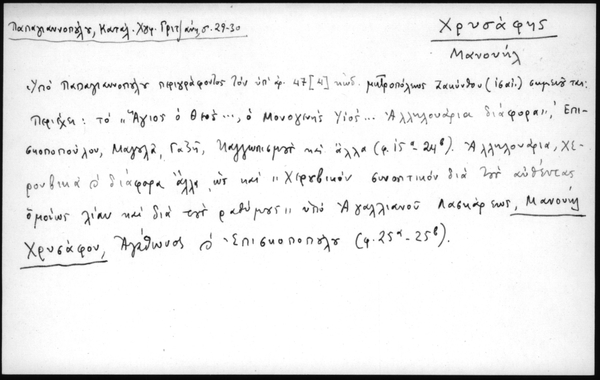 Παπαγιαννοπούλου, Καταλ. Χφφ. Γριτσάνη, σ. 29-30
Χρυσάφης
Μανουήλ
Ὑπὸ Παπαγιαννοπούλου περιγράφοντος τὸν ὑπ' ἀρ. 47[4] κώδ. μητροπόλεως Ζακύνθου (ἰσαί.) σημειοῦται:
Περιέχει: τὸ "Ἅγιος ὁ Θεός..., ὁ Μονογενὴς Υἱός... Ἀλληλουάρια διάφορα", Ἐπι-
σκοποπούλου, Μαγουλᾶ, Γαζῆ, Καλλωπισμοῦ καὶ ἄλλα (φ. 15α-24β). Ἀλληλουάρια, χε-
ρουβικὰ διάφορα ἄλλα ὡς καὶ "Χερουβικὸν συνοπτικὸν διὰ τοὺς αὐθέντας
ὁμοίως λίαν καὶ διὰ τοὺς ῥαθύμους" ὑπὸ Ἀγαλλιανοῦ Λασκάρεως, Μανουὴλ
Χρυσάφου, Ἀγάθωνος Ἐπισκοποπούλου (φ. 25α-25β).